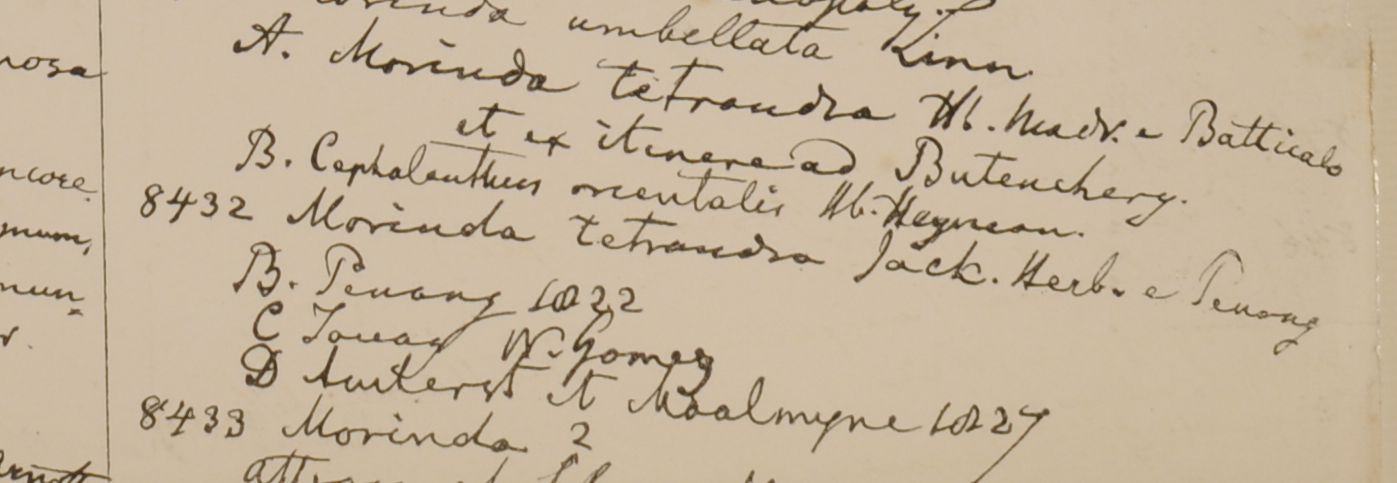 umbellata Linn.
A. Morinda tetrandra Hb. Madr. e Batticalo
et ex itinere ad Butenchery.
B. Cephalanthus orientalis Hb. Heynean.
8432 Morinda tetrandra Jack. Herb. e Penang
B. Penang 1822
C Tavay W. Gomez
D Amherst et Moalmyne 1827
8433 Morinda 2